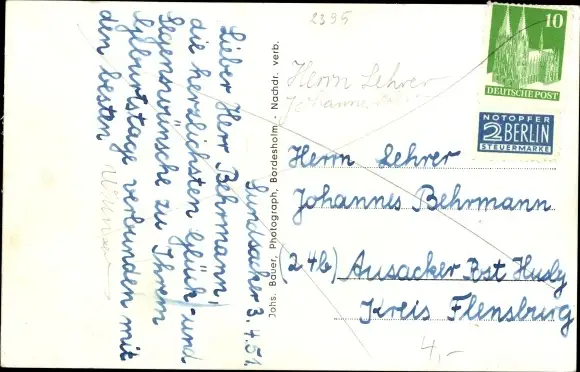 2395
Sundsacker 3. 4. 51.
Lieber Herr Behrmann,
die herzlichsten Glück- und
Segenswünsche zu Ihrem
Geburtstage verbunden mit
den besten
Johs. Bauer, Photograph, Bordesholm - Nachdr. verb.
10
DEUTSCHE POST
NOTOPFER
2 BERLIN
STEUERMARKE
Herrn Lehrer
Johannes
Herrn Lehrer
Johannes Behrmann
(24b) Ausacker Post Husby
Kreis Flensburg
4,-